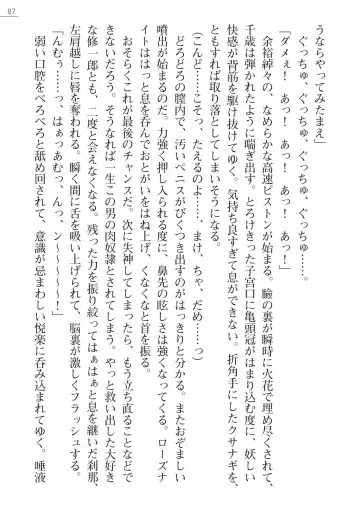 87
うならやってみたまえ」
ぐっちゅ、ぐっちゅ、ぐっちゅ、ぐっちゅ……。
「ダメぇ！　あっ！　あっ！　あっ！　あっ！」
余裕綽々の、なめらかな高速ピストンが始まる。瞼の裏が瞬時に火花で埋め尽くされて、
千歳は弾かれたように喘ぎ出す。とろけきった子宮口に亀頭冠がはまるたびに、妖しい
快感が背筋を駆け抜けてゆく。気持ち良すぎて息ができない。折角手にしたクサナギを、
ともすればすぐ取り落としてしまいそうになる。
（こんど……こそっ、たえるのよ……まけ、ちゃ、だめ……っ）
どろどろの膣内で、汚いペニスがびくつき出すのがはっきりと分かる。またおぞましい
噴出が始まるのだ。力強く押し入られる度に、鼻先の眩しさは強くなってゆく。ローズナ
イトははっと息を呑んでおとがいをはね上げ、くなくなと首を振る。
おそらくこれが最後のチャンスだ。次に失神してしまったら、もう立ち直ることなどで
きないだろう。そうなれば一生この男の肉奴隷とされてしまう。やっと救い出した大好き
な修一郎とも、二度と会えなくなる。残った力を振り絞ってはぁはぁと息を継いだ刹那、
左肩越しに唇を奪われる。瞬く間に舌を吸い上げられて、脳裏が激しくフラッシュする。
「んむぅ……っ、はぁっあむっ、んっ、ン〜〜〜〜〜〜！」
弱い口腔をべろべろと舐め回されて、意識が忌まわしい悦楽に呑み込まれてゆく。唾液